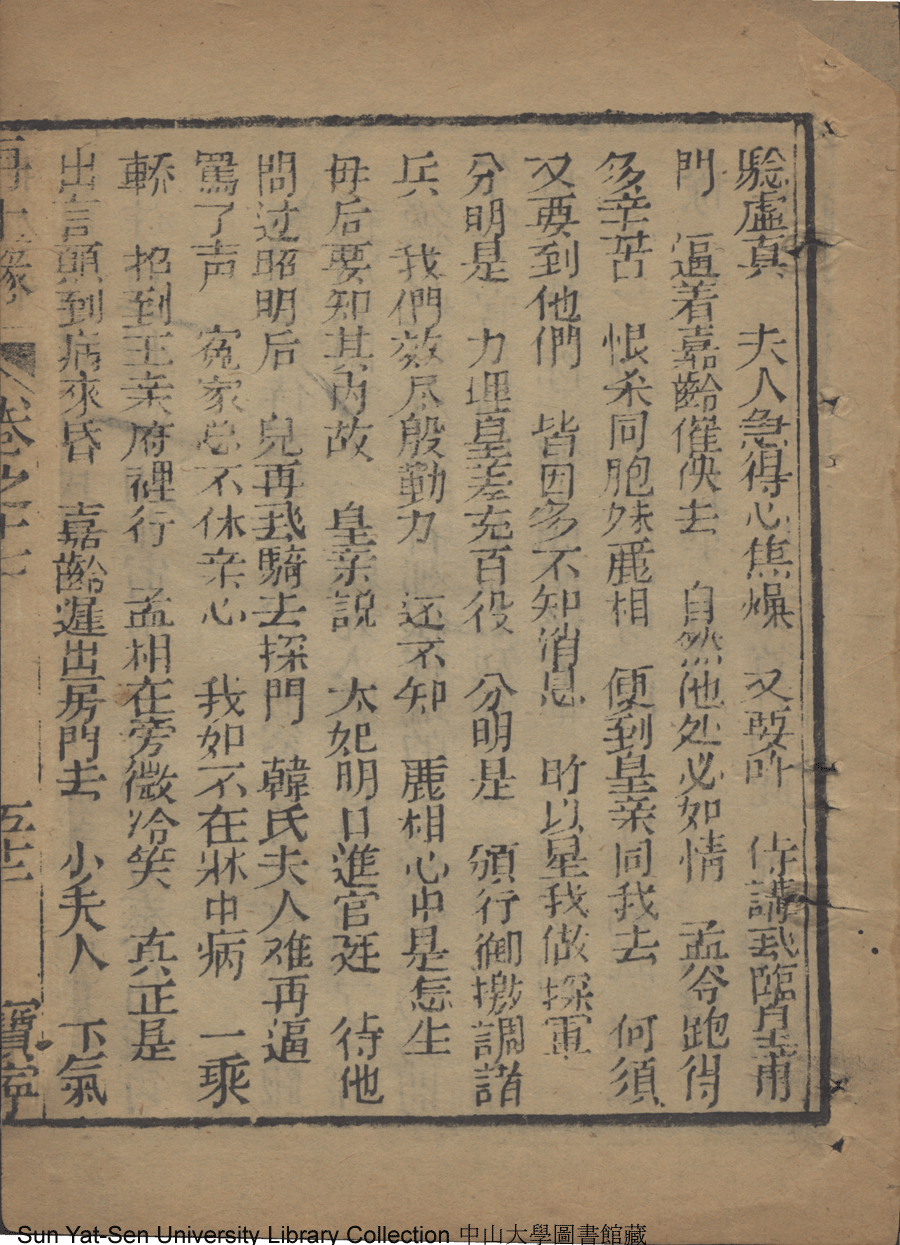 驗虛真　夫人急得心焦燥　又要吩　侍講再臨皇甫
門　逼着嘉齡催促去　自然他処必如情　孟爷跑得
多辛苦　恨杀同胞妹麗相　便到皇亲同我去　何須
又要到他們　皆因多不知消息　所以星我做探軍
分明是　力理皇差充百役　分明是　頒行御撽調諸
兵　我們效尽殷勤力　还不知　麗相心中是怎生
毋后要知其內故　皇亲說　太妃明日進官廷　待他
問过昭明后　兒再我騎去探門　韓氏夫人难再逼
罵了声　寃家总不休亲心　我如不在牀中病　一乘
轎　抬到王亲府裡行　孟相在旁微冷笑　真正是
出言顛到病來昏　嘉齡遲出房門去　小夫人　下氣
再生緣　卷之十七　五十二　寶寧
Sun Yat-Sen University Library Collection 中山大學圖書館藏